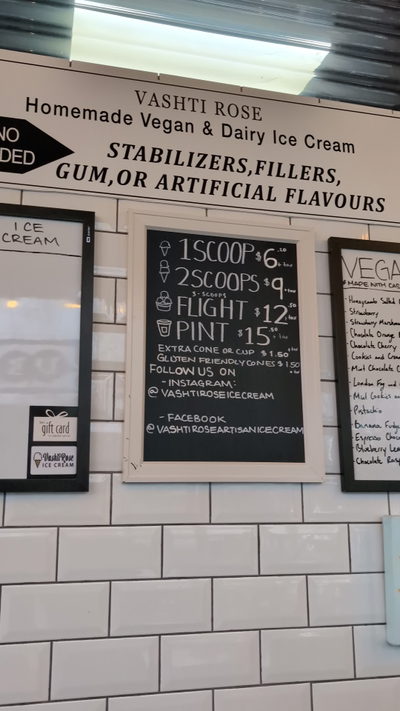 VASHTI ROSE
Homemade Vegan & Dairy Ice Cream
NO
DED
STABILIZERS,FILLERS,
GUM,OR ARTIFICIAL FLAVOURS
ICE
CREAM
gift card
Vashti Rose
ICE CREAM
1 SCOOP $6.20
2 SCOOPS $9
3-SCOOPS
FLIGHT $12.50
PINT $15.50
EXTRA CONE OR CUP $1.50
GLUTEN FRIENDLY CONES $1.50
FOLLOW US ON
- INSTAGRAM:
@VASHTIROSEICECREAM
- FACEBOOK
@VASHTIROSEARTISANICECREAM
VEGA
Honeycomb Salted
Strawberry
Strawberry Marshma
Chocolate Orange
Chocolate Cherry
Cookies and Crea
Mint Chocolate C
London Fog and
Mint Cookies an
Pistachio
Banana Fudge
Espresso Choc
Blueberry Lem
Chocolate Rasp